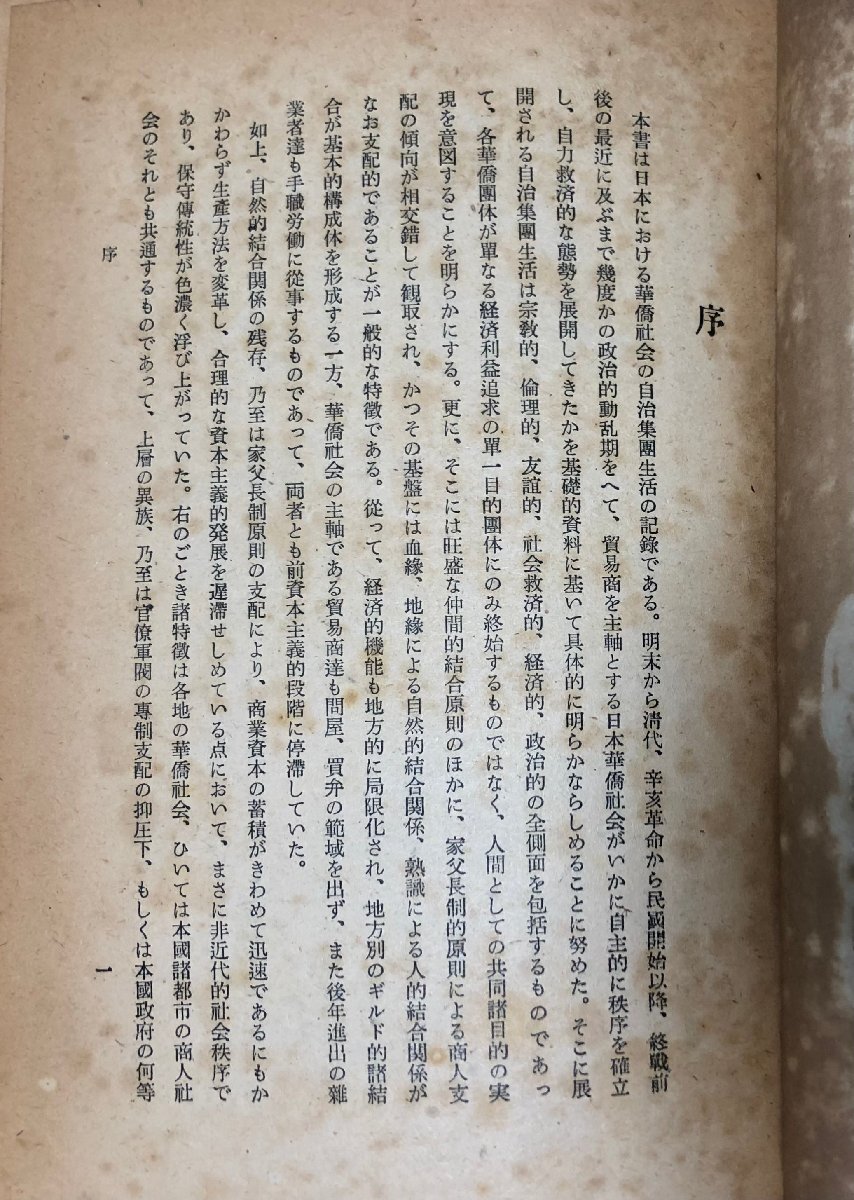 序
本書は日本における華僑社会の自治集團生活の記錄である。明末から淸代、辛亥革命から民國開始以降、終戰前
後の最近に及ぶまで幾度かの政治的動乱期をへて、貿易商を主軸とする日本華僑社会がいかに自主的に秩序を確立
し、自力救済的な態勢を展開してきたかを基礎的資料に基いて具体的に明らかならしめることに努めた。そこに展
開される自治集團生活は宗敎的、倫理的、友誼的、社会救済的、経済的、政治的の全側面を包括するものであっ
て、各華僑團体が單なる経済利益追求の單一目的團体にのみ終始するものではなく、人間としての共同諸目的の実
現を意図することを明らかにする。更に、そこには旺盛な仲間的結合原則のほかに、家父長制的原則による商人支
配の傾向が相交錯して観取され、かつその基盤には血緣、地緣による自然的結合関係、熟識による人的結合関係が
なお支配的であることが一般的な特徴である。從って、経済的機能も地方的に局限化され、地方別のギルド的諸結
合が基本的構成体を形成する一方、華僑社会の主軸である貿易商達も問屋、買弁の範域を出ず、また後年進出の雜
業者達も手職労働に從事するものであって、両者とも前資本主義的段階に停滯していた。
如上、自然的結合関係の残存、乃至は家父長制原則の支配により、商業資本の蓄積がきわめて迅速であるにもか
かわらず生產方法を変革し、合理的な資本主義的発展を遅滯せしめている点において、まさに非近代的社会秩序で
あり、保守傳統性が色濃く浮び上がっていた。右のごとき諸特徴は各地の華僑社会、ひいては本國諸都市の商人社
会のそれとも共通するものであって、上層の異族、乃至は官僚軍閥の專制支配の抑圧下、もしくは本國政府の何等
序
一